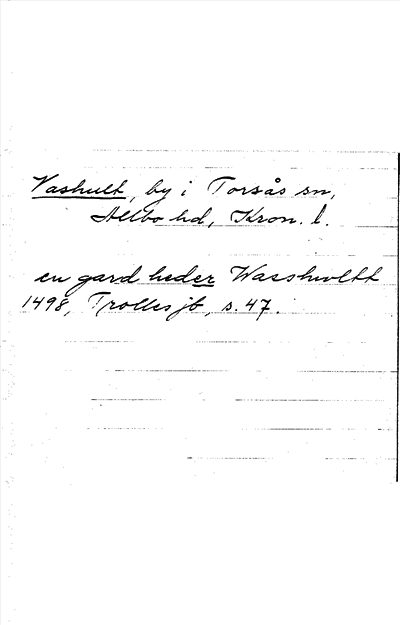 Vashult, by i Torsås sn,
Allbo hd, Kron. l.
en gard heder Wasshwltt
1498, Trolles jb, s. 47.